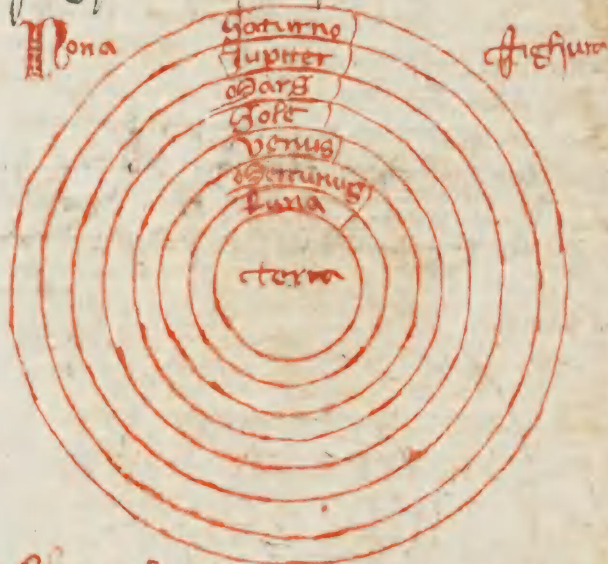 Nona
fighura
Saturno
Jupiter
Mars
Sole
Venus
Mercurius
Luna
terra